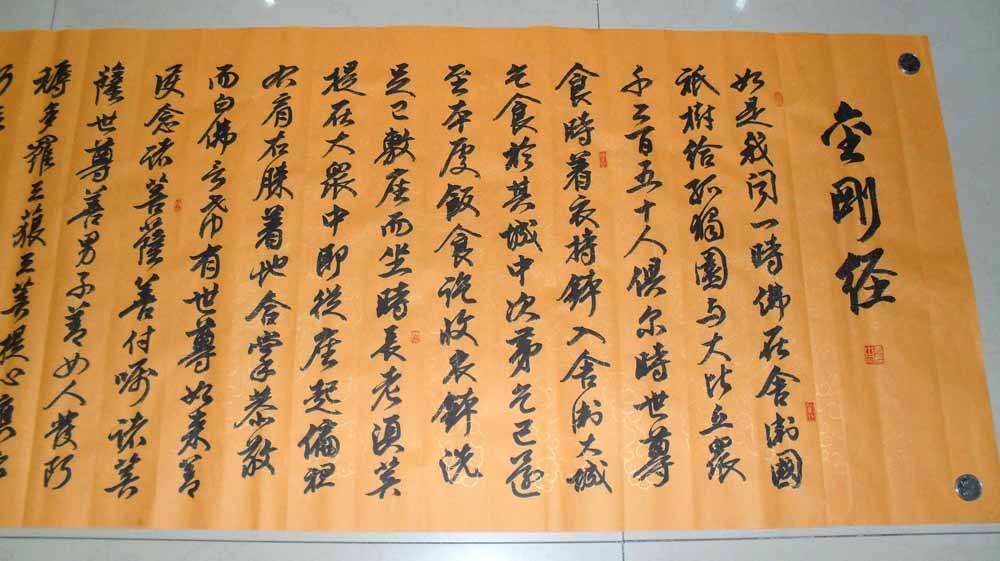 金剛经
如是我闻一時佛在舍衛國
祇樹给孤獨園与大比丘眾
千二百五十人俱尔時世尊
食時着衣持鉢入舍衛大城
乞食於其城中次第乞已還
至本處飯食訖收衣鉢洗
足已敷座而坐時長老須菩
提在大眾中即從座起偏袒
右肩右膝着地合掌恭敬
而白佛言希有世尊如来善
護念诸菩薩善付嘱诸菩
薩世尊善男子善女人發阿
耨多羅三藐三菩提心應云